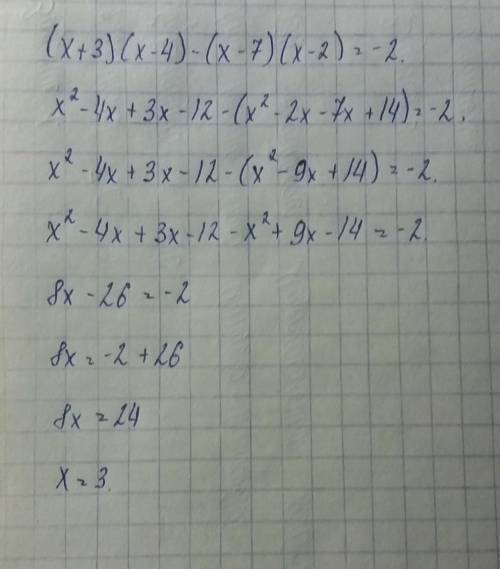 (x+3)(x-4)-(x-7)(x-2)=-2.
x²-4x+3x-12-(x²-2x-7x+14)=-2.
x²-4x+3x-12-(x²-9x+14)=-2.
x²-4x+3x-12-x²+9x-14=-2.
8x-26=-2
8x=-2+26
8x=24
x=3.